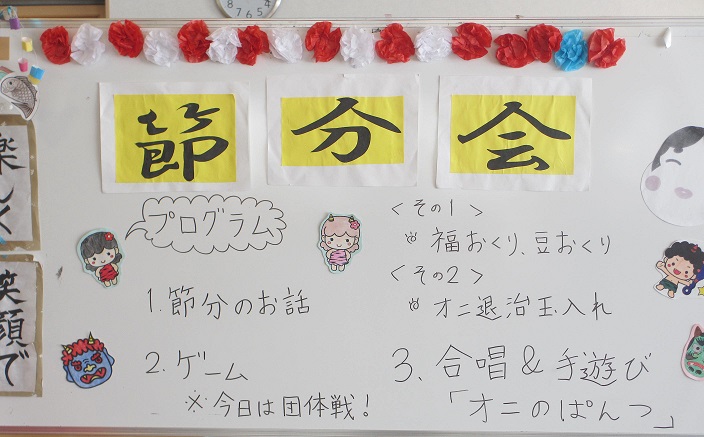 節分会
プログラム
1. 節分のお話
2. ゲーム
※今日は団体戦!
<その1>
福おくり、豆おくり
<その2>
オニ退治玉入れ
3. 合唱&手遊び
「オニのぱんつ」
楽しく
笑顔で